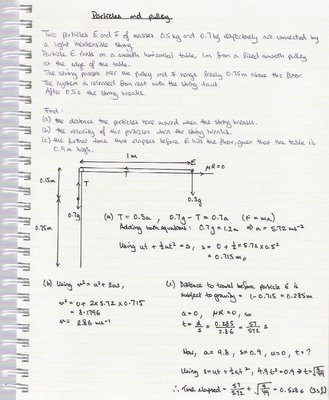 Particles and pulley
Two particles E and F of masses 0.5kg and 0.7kg respectively are connected by
a light inextensible string.
Particle E rests on a smooth horizontal table, 1m from a fixed smooth pulley
at the edge of the table.
The string passes over the pulley and F hangs freely 0.75m above the floor.
The system is released from rest with the string taut.
After 0.5s the string breaks.
Find:
(a) the distance the particles have moved when the string breaks.
(b) the velocity of the particles when the string breaks.
(c) the further time that elapses before E hits the floor, given that the table is
0.9m high.
1m
E
μR=0
T
0.15m
T
0.5g
0.7g
0.75m
(a) T = 0.5a , 0.7g - T = 0.7a (F = ma)
Adding both equations: 0.7g = 1.2a ⇒ a = 5.72 ms⁻²
Using ut + ½at² = s, s = 0 + ½ × 5.72 × 0.5²
= 0.715m
(b) Using v² = u² + 2as,
v² = 0 + 2×5.72×0.715
= 8.1796
v = 2.86 ms⁻¹
(c) Distance to travel before particle E is
subject to gravity = 1 - 0.715 = 0.285m
a = 0, μR = 0, so
t = d/s = 0.285/2.86 = 57/572 s
Now, a = 9.8, s = 0.9, u = 0, t = ?
Using s = ut + ½at², 4.9t² = 0.9 ⇒ t = √(9/49)
∴ Time elapsed = 57/572 + √(9/49) = 0.528s (3sf)